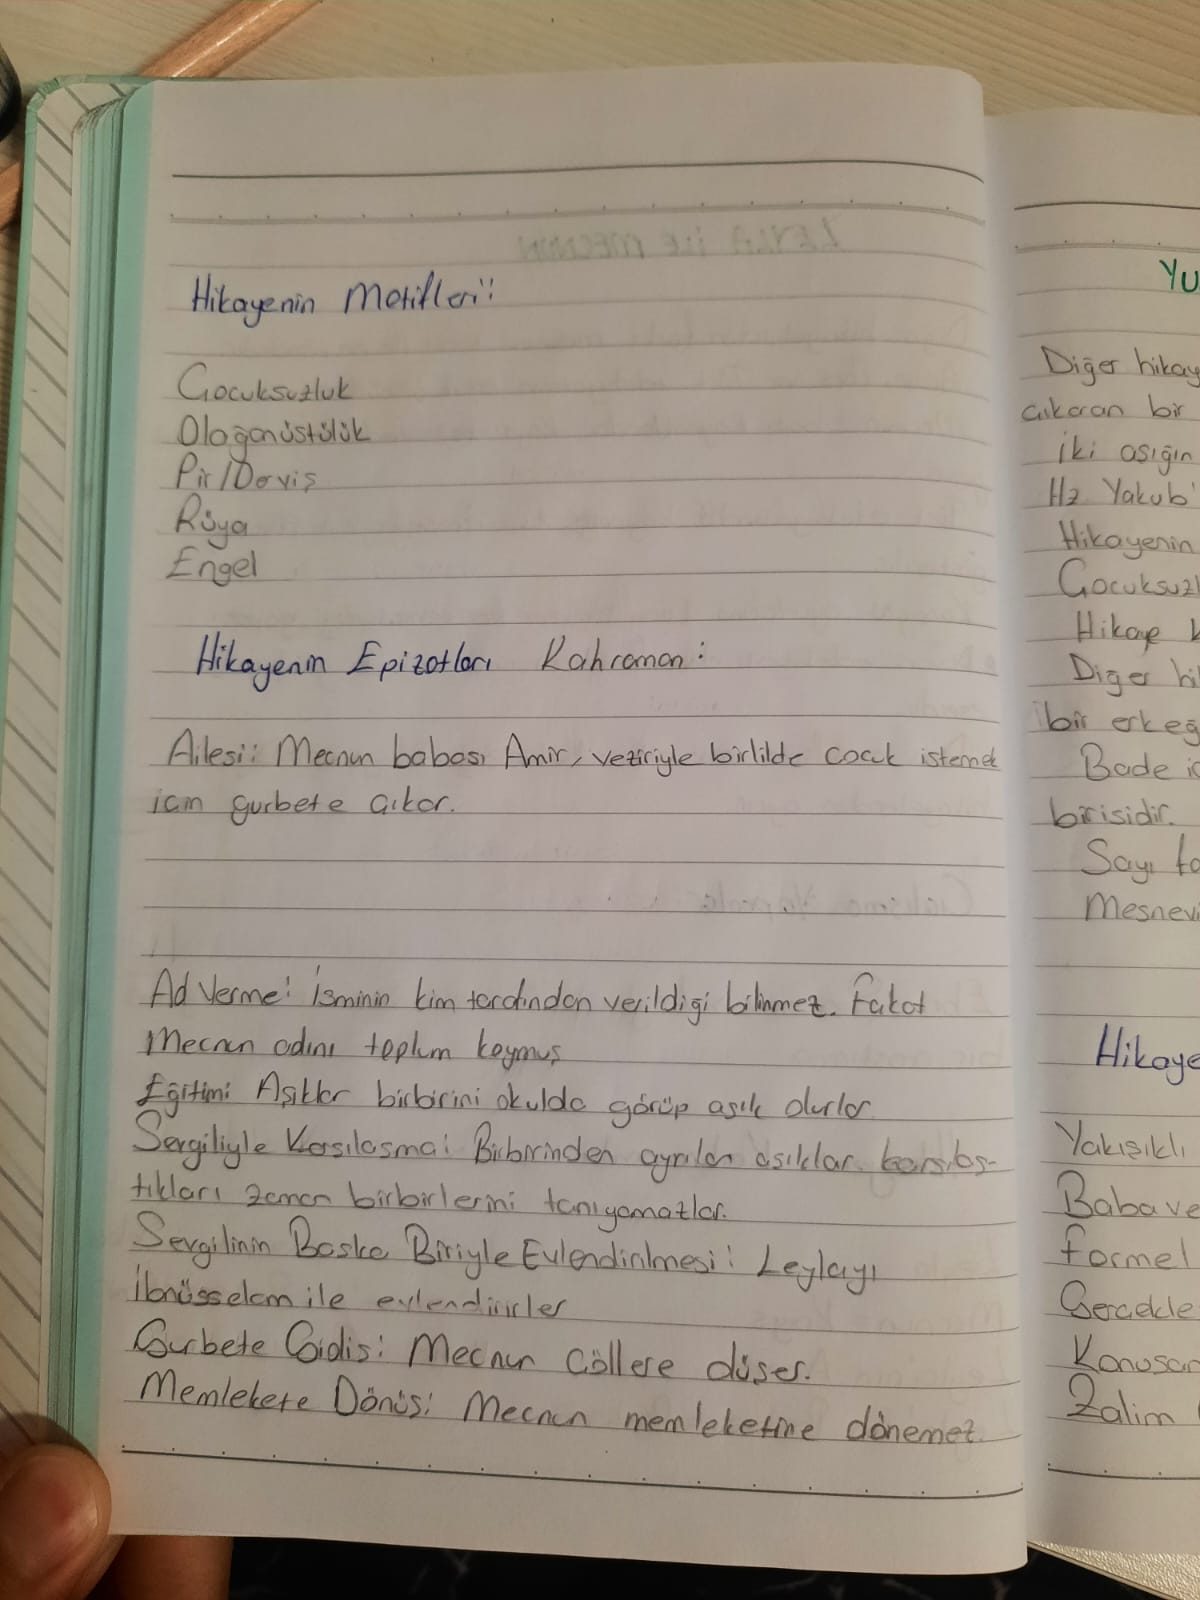 Hikayenin Motifleri:
Çocuksuzluk
Olağanüstülük
Pir/Derviş
Rüya
Engel
Hikayenin Epizotları Kahraman:
Ailesi: Mecnun babası Amir, veziriyle birlilde cocuk istemek
icin gurbete çıkar.
Ad Verme: İsminin kim tarafından verildiği bilinmez. Fakat
Mecnun adını toplum koymuş
Eğitimi Aşıklar birbirini okulda görüp aşık olurlar
Sevgiliyle Karsılasma: Birbirinden ayrılan asıklar karsılas-
tıkları zaman birbirlerini tanıyamazlar.
Sevgilinin Baska Biriyle Evlendirilmesi: Leylayı
İbnüsselam ile evlendirirler
Gurbete Gidis: Mecnun Cöllere düser.
Memlekete Dönüs: Mecnun memleketine dönemez.
YU
Diğer hikay
çıkaran bir
iki aşığın
Hz Yakub'
Hikayenin
Çocuksuzl
Hikaye k
Diger hi
bir erkeğ
Bade iç
birisidir.
Sayı fo
Mesnevi
Hikaye
Yakışıklı
Baba ve
Formel
Gercekle
Konusan
Zalim